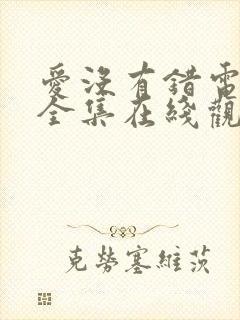 愛沒有錯電
全集在綫觀
克勞塞維茨